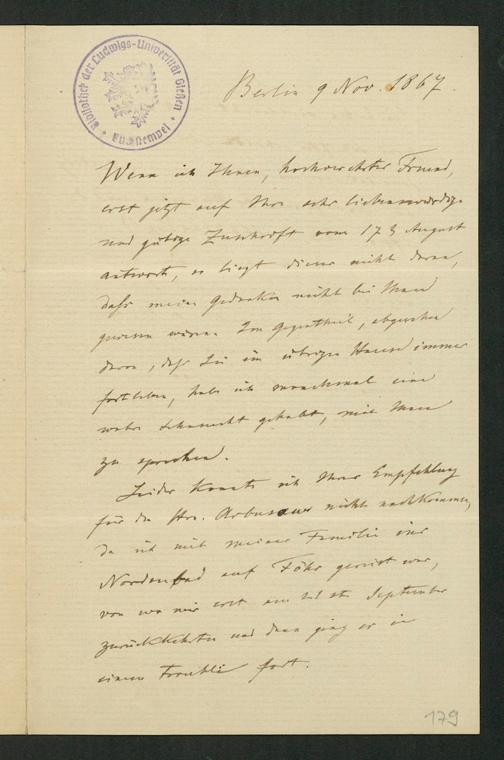 Bibliothek der Ludwigs-Universität Gießen
Buchstempel
Berlin 9 Nov. 1867.
Wenn ich Ihnen, hochverehrter Freund,
erst jetzt auf Ihre sehr liebenswürdige
und gütige Zuschrift vom 17 August
antworte, so liegt dieses nicht daran,
daß meine Gedanken nicht bei Ihnen
gewesen wären. Im Gegentheil, abgesehen
davon, daß Sie im übrigen Hause immer
fortleben, habe ich manchmal eine
wahre Sehnsucht gehabt, mit Ihnen
zu sprechen.
Leider konnte ich Ihrer Empfehlung
für den Hrn. nicht nachkommen,
da ich mit meiner Familie ins
Nordseebad auf Föhr gereist war,
von wo wir erst am September
zurückkehrten und dann ging es in
einem Trouble fort.
179